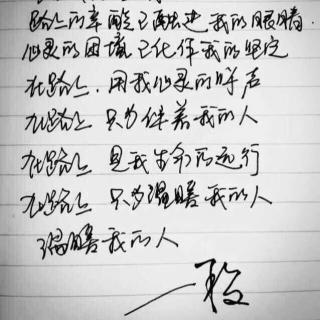 路上的辛酸已融进我的眼睛
心灵的困境已化作我的坚定
在路上 用我心灵的呼声
在路上 只为伴着我的人
在路上 是我生命的远行
在路上 只为温暖我的人
温暖我的人